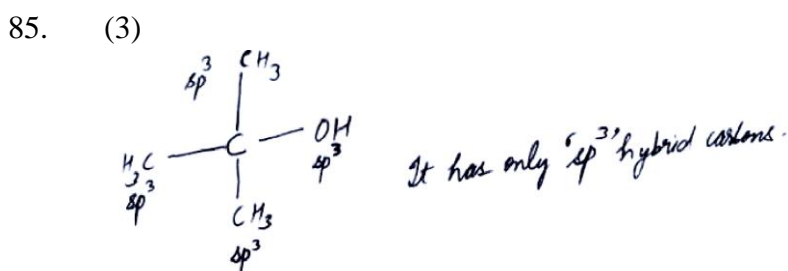 85. (3)
sp³ CH₃
H₃C — C — OH
sp³ sp³
CH₃
sp³
It has only 'sp³' hybrid carbons.